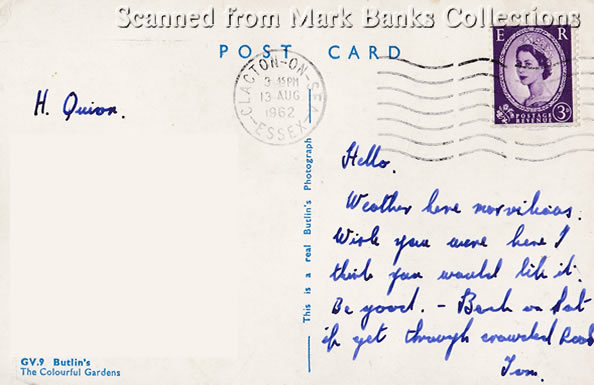 Scanned from Mark Banks Collections
POST CARD
E R
POSTAGE
REVENUE
3D
CLACTON-ON-SEA
3-15PM
13 AUG
1962
ESSEX
H. Quinn.
This is a real Butlin's Photograph
Hello.
Weather here marvilous.
Wish you were here I
think you would like it.
Be good. - Back on Sat
if get through crowded Roads
Tom.
GV.9 Butlin's
The Colourful Gardens